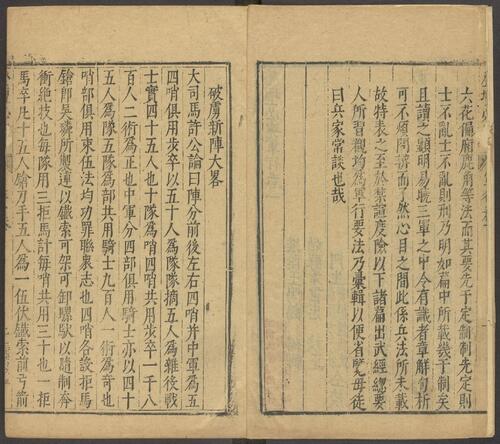 六花偏廂鹿角等法而其要先于定制制先定則
士不亂士不亂則刑乃明如篇中所載幾于制矣
且讀之顯明易曉三軍之中令有識者章解句析
可不煩講而了然心目之間此係兵法所未載
故特表之至於禁諠度險以下諸篇出武經總要
人所習觀均為軍行要法乃彙輯以便省覽毋徒
曰兵家常談也哉
破虜新陣大畧
大司馬許公論曰陣分前後左右四哨并中軍為五
四哨俱用步卒以五十人為隊隊摘五人為雜後戰
士實四十五人也十隊為哨四哨共用步卒一千八
百人二術為正也中軍分四部俱用騎士亦以四十
五人為隊五隊為部共用騎士九百人一術為奇也
哨部俱用束伍法均功罪聯衆志也四哨各設拒馬
鎗即吳璘所製連以鐵索可架可卸騾馱以隨制奔
衝絶技也每隊用三拒馬計每哨共用三十也一拒
馬卒凡十五人鎗刀手五人為一伍伏鐵索前弓箭